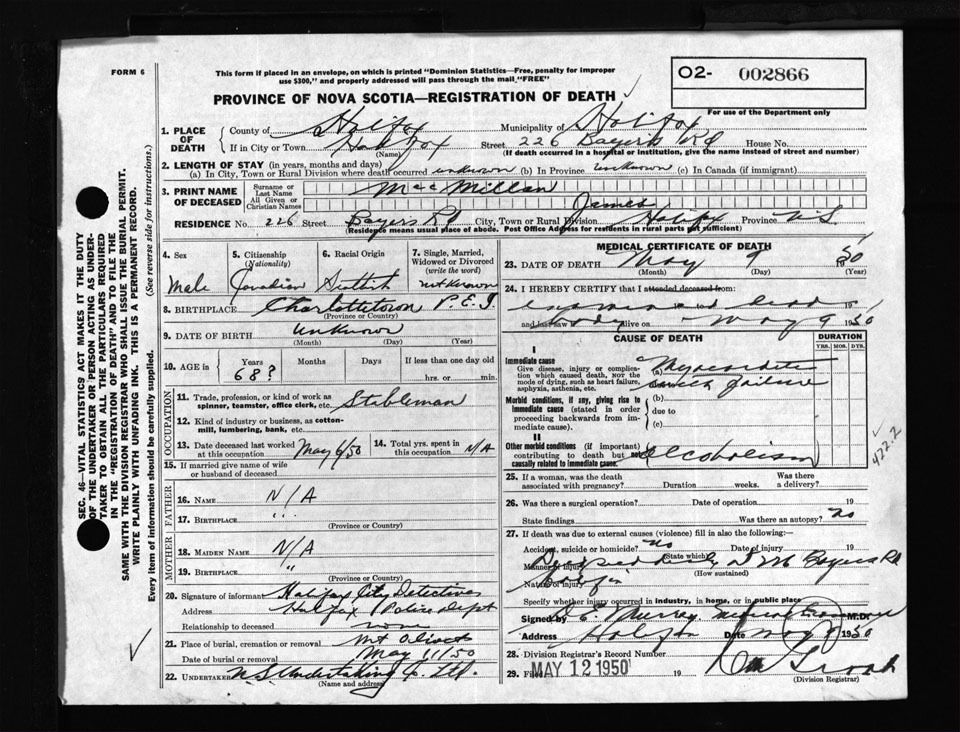 FORM 6
This form if placed in an envelope, on which is printed "Dominion Statistics—Free, penalty for improper
use $300," and properly addressed will pass through the mail "FREE"
O2- 002866
For use of the Department only
PROVINCE OF NOVA SCOTIA—REGISTRATION OF DEATH
1. PLACE OF DEATH
County of Halifax Municipality of Halifax
If in City or Town Halifax (Name) Street 226 Bayers Rd House No.
(If death occurred in a hospital or institution, give the name instead of street and number)
2. LENGTH OF STAY (in years, months and days)
(a) In City, Town or Rural Division where death occurred unknown (b) In Province unknown (c) In Canada (if immigrant)
3. PRINT NAME OF DECEASED
Surname or Last Name MacMillan
All Given or Christian Names James
RESIDENCE No. 226 Street Bayers Rd City, Town or Rural Division Halifax Province N.S.
(Residence means usual place of abode. Post Office Address for residents in rural parts not sufficient)
4. Sex
Male
5. Citizenship (Nationality)
Canadian
6. Racial Origin
Scottish
7. Single, Married, Widowed or Divorced (write the word)
not known
8. BIRTHPLACE Charlottetown P.E.I
(Province or Country)
9. DATE OF BIRTH unknown
(Month) (Day) (Year)
10. AGE in Years 68? Months Days If less than one day old
hrs. or min.
OCCUPATION
11. Trade, profession or kind of work as spinner, teamster, office clerk, etc. Stableman
12. Kind of industry or business, as cotton-mill, lumbering, bank, etc.
13. Date deceased last worked at this occupation May 6/50
14. Total yrs. spent in this occupation N/A
15. If married give name of wife or husband of deceased
FATHER
16. NAME N/A
17. BIRTHPLACE "
(Province or Country)
MOTHER
18. MAIDEN NAME N/A
19. BIRTHPLACE
(Province or Country)
20. Signature of informant Halifax City Detectives
Address Halifax Police Dept
Relationship to deceased none
21. Place of burial, cremation or removal Mt Olivet
Date of burial or removal May 11/50
22. UNDERTAKER N S Undertaking Co. Ltd.
(Name and address)
MEDICAL CERTIFICATE OF DEATH
23. DATE OF DEATH May 9 1950
(Month) (Day) (Year)
24. I HEREBY CERTIFY that I attended deceased from:
examined dead
and last saw body alive on May 9 1950
CAUSE OF DEATH
DURATION
YRS. MOS. DYS.
I
Immediate cause
Give disease, injury or complication which caused death, NOT the mode of dying, such as heart failure, asphyxia, asthenia, etc.
(a) Myocarditis
failure
Morbid conditions, if any, giving rise to immediate cause (stated in order proceeding backwards from immediate cause).
(b)
due to
(c)
II
Other morbid conditions (if important) contributing to death but not causally related to immediate cause.
alcoholism
422.2
25. If a woman, was the death associated with pregnancy? Duration weeks. Was there a delivery?
26. Was there a surgical operation? Date of operation 19
State findings Was there an autopsy? no
27. If death was due to external causes (violence) fill in also the following:
Accident, suicide or homicide? no Date of injury 19
(State which)
Manner of injury Died suddenly Bayers Rd
(How sustained)
Nature of injury Halifax
Specify whether injury occurred in industry, in home, or in public place
Signed by Medical Examiner M.D.
Address Halifax Date May 9 1950
28. Division Registrar's Record Number
29. Filed MAY 12 1950 19
(Division Registrar)
SEC. 46—VITAL STATISTICS ACT MAKES IT THE DUTY
OF THE UNDERTAKER OR PERSON ACTING AS UNDER-
TAKER TO OBTAIN ALL THE PARTICULARS REQUIRED
IN THE "REGISTRATION OF DEATH" AND TO FILE THE
SAME WITH THE DIVISION REGISTRAR WHO SHALL ISSUE THE BURIAL PERMIT.
WRITE PLAINLY WITH UNFADING INK. THIS IS A PERMANENT RECORD.
Every item of information should be carefully supplied. (See reverse side for instructions.)